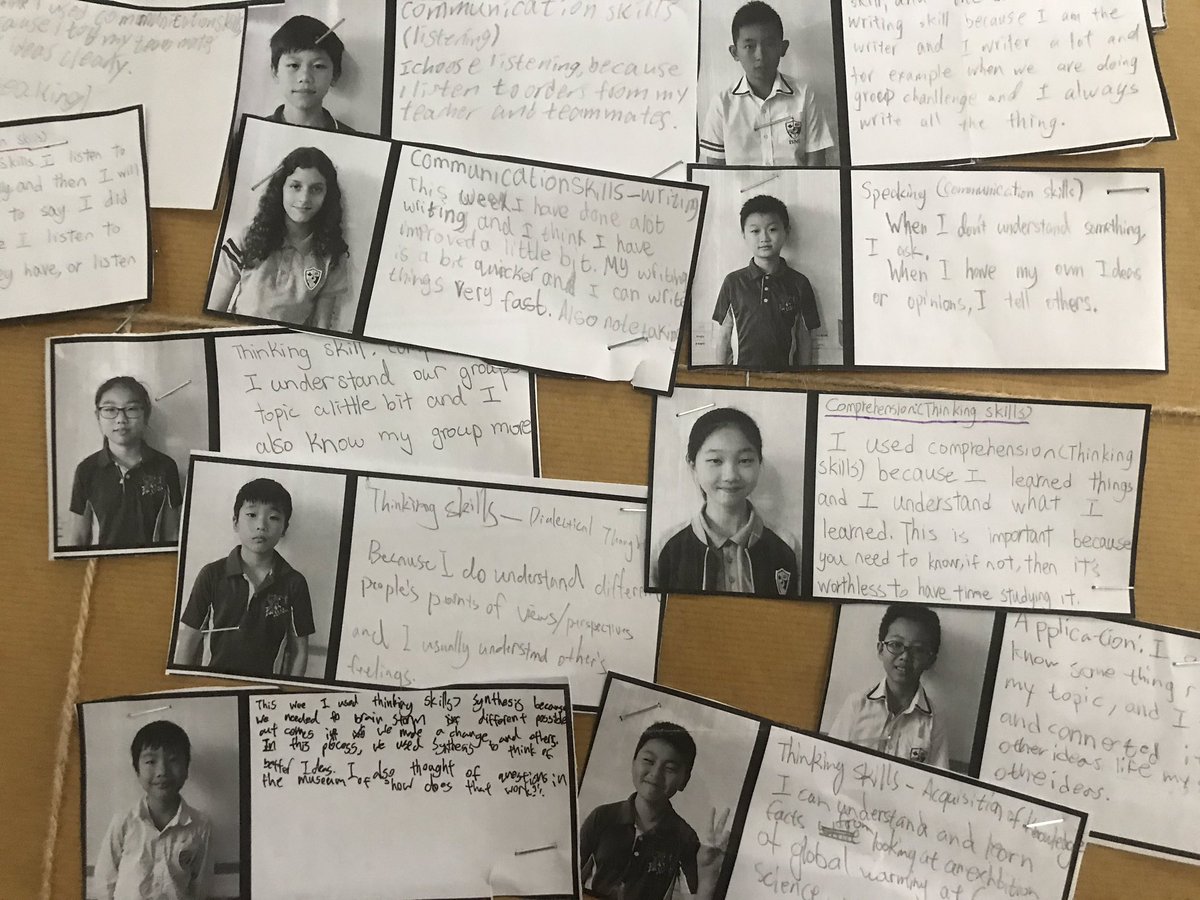 my team mate
ideas clearly.
Communication skills
(listening)
I choose listening, because
I listen to orders from my
teacher and teammates.
writing skill because I am the
writer and I writer a lot and
for example when we are doing
group chanllenge and I always
write all the thing.
skills. I listen to
and then I will
to say I did
I listen to
they have, or listen
Communication Skills-writing
This week I have done a lot
writing and I think I have
improved a little bit. My writing
is a bit quicker and I can write
things very fast. Also note taking
Speaking (Communication skills)
When I don't understand something,
I ask.
When I have my own Ideas
or opinions, I tell others.
Thinking skill.
I understand our groups
topic a little bit and I
also know my group more
Comprehension(Thinking skills)
I used comprehension(Thinking
skills) because I learned things
and I understand what I
learned. This is important because
you need to know, if not, then it's
worthless to have time studying it.
Thinking skills- Dialectical
Because I do understand
people's points of views/perspectives
and I usually understand other's
feelings.
Application: I
know some thing
my topic, and I
and connected
other ideas life my
othe ideas.
This wee I used thinking skills> synthesis
we needed to brain storm different possible
out comes if we made a change and others.
In this process, we used to think of
better Ideas. I also thought of questions in
the museum of "how does that work?".
Thinking skills - Acquisition of knowledge
I can understand and learn
facts from looking at an exhibition
of global warming at
science